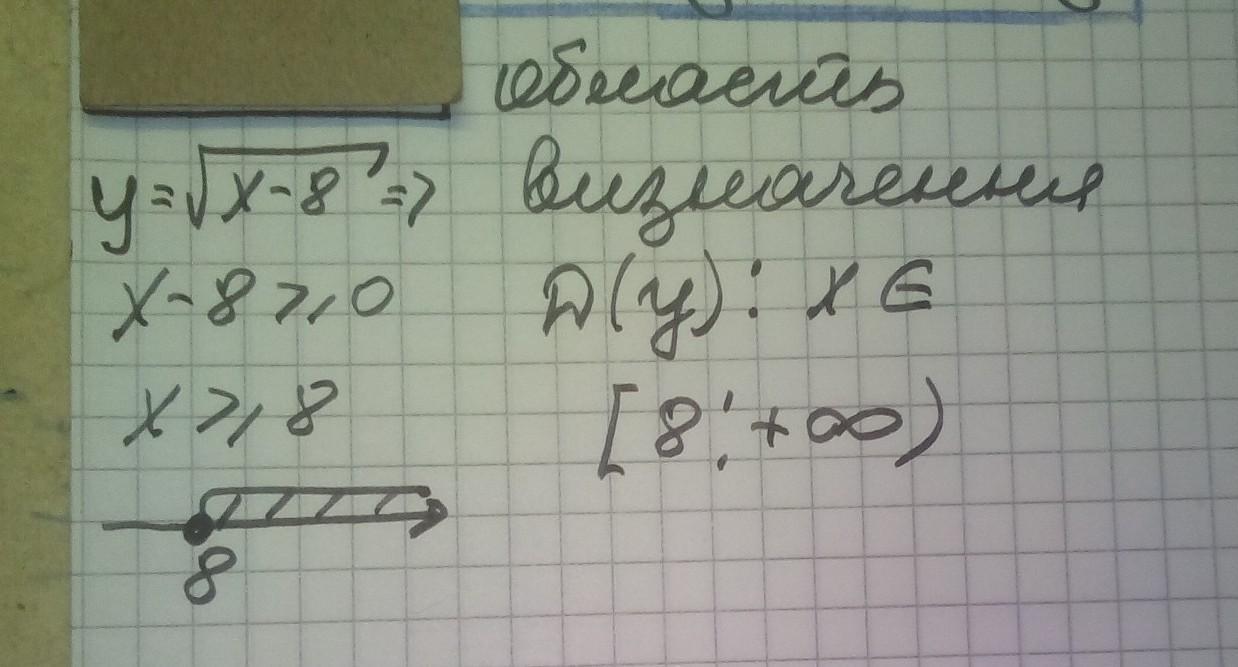 область
y=√x-8 => визначення
x-8≥0 D(y): x ∈
x≥8 [8;+∞)
8